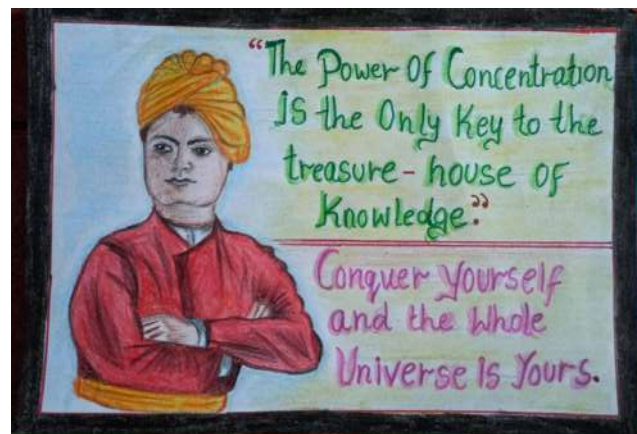 “The Power Of Concentration
is the Only Key to the
treasure - house of
Knowledge.”
Conquer yourself
and the Whole
Universe Is Yours.